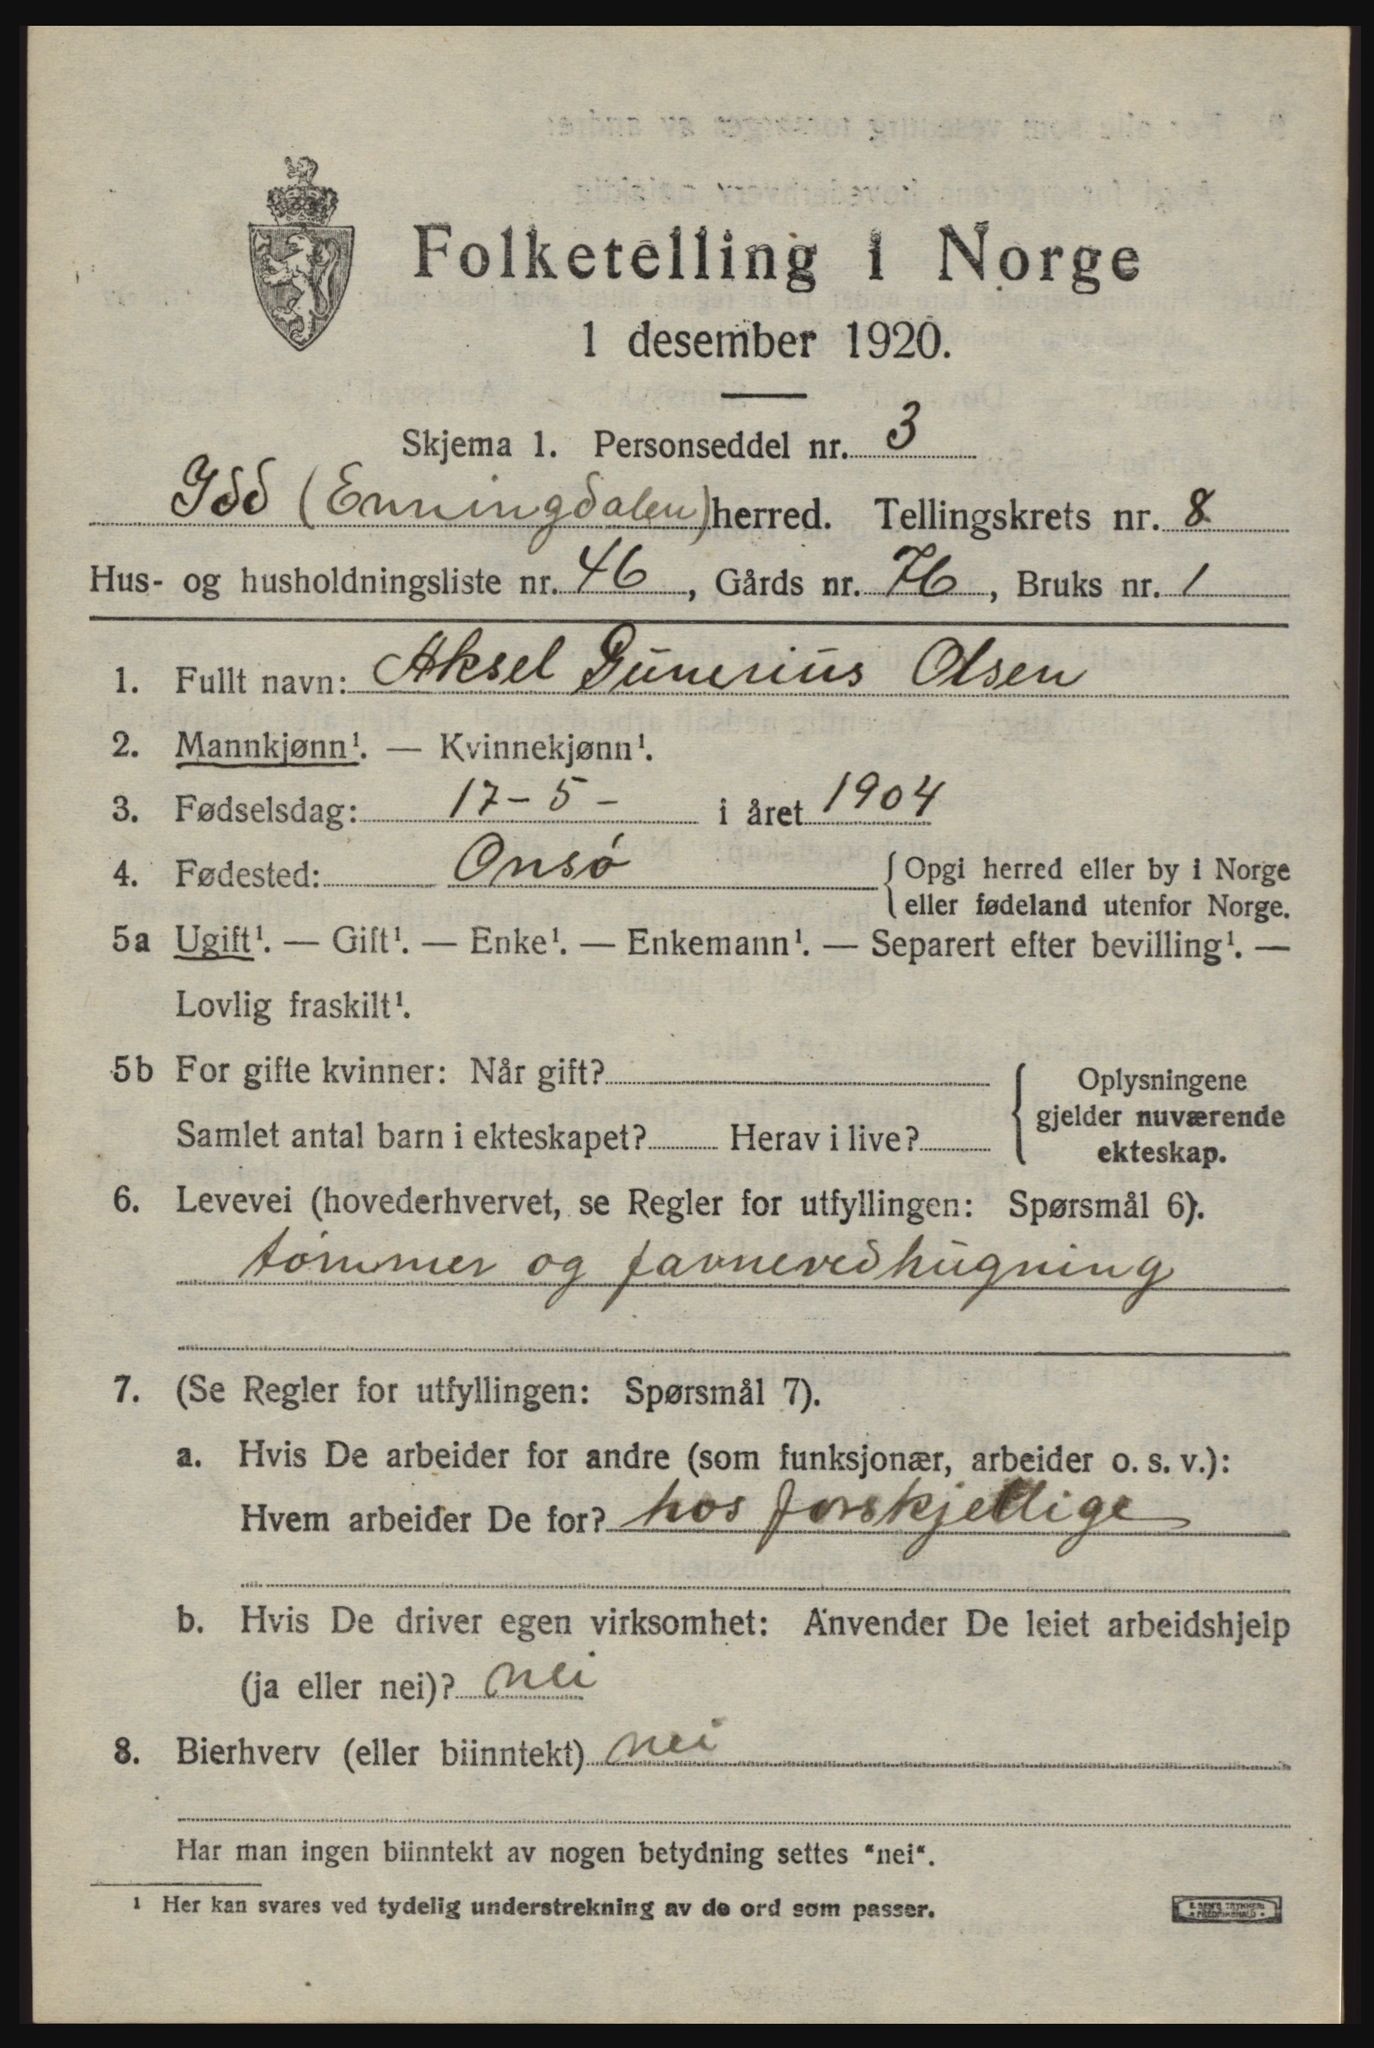 Folketelling i Norge
1 desember 1920.
Skjema 1. Personseddel nr. 3
Idd (Enningdalen) herred. Tellingskrets nr. 8
Hus- og husholdningsliste nr. 46, Gårds nr. 76, Bruks nr. 1
1. Fullt navn: Aksel Gunerius Olsen
2. Mannkjønn¹. — Kvinnekjønn¹.
3. Fødselsdag: 17-5- i året 1904
4. Fødested: Onsø { Opgi herred eller by i Norge
eller fødeland utenfor Norge.
5a Ugift¹. — Gift¹. — Enke¹. — Enkemann¹. — Separert efter bevilling¹. —
Lovlig fraskilt¹.
5b For gifte kvinner: Når gift?
Samlet antal barn i ekteskapet? Herav i live?
{ Oplysningene
gjelder nuværende
ekteskap.
6. Levevei (hovederhvervet, se Regler for utfyllingen: Spørsmål 6).
tømmer og favnevedhugning
7. (Se Regler for utfyllingen: Spørsmål 7).
a. Hvis De arbeider for andre (som funksjonær, arbeider o. s. v.):
Hvem arbeider De for? hos forskjellige
b. Hvis De driver egen virksomhet: Anvender De leiet arbeidshjelp
(ja eller nei)? nei
8. Bierhverv (eller biinntekt) nei
Har man ingen biinntekt av nogen betydning settes "nei".
¹ Her kan svares ved tydelig understrekning av de ord som passer.